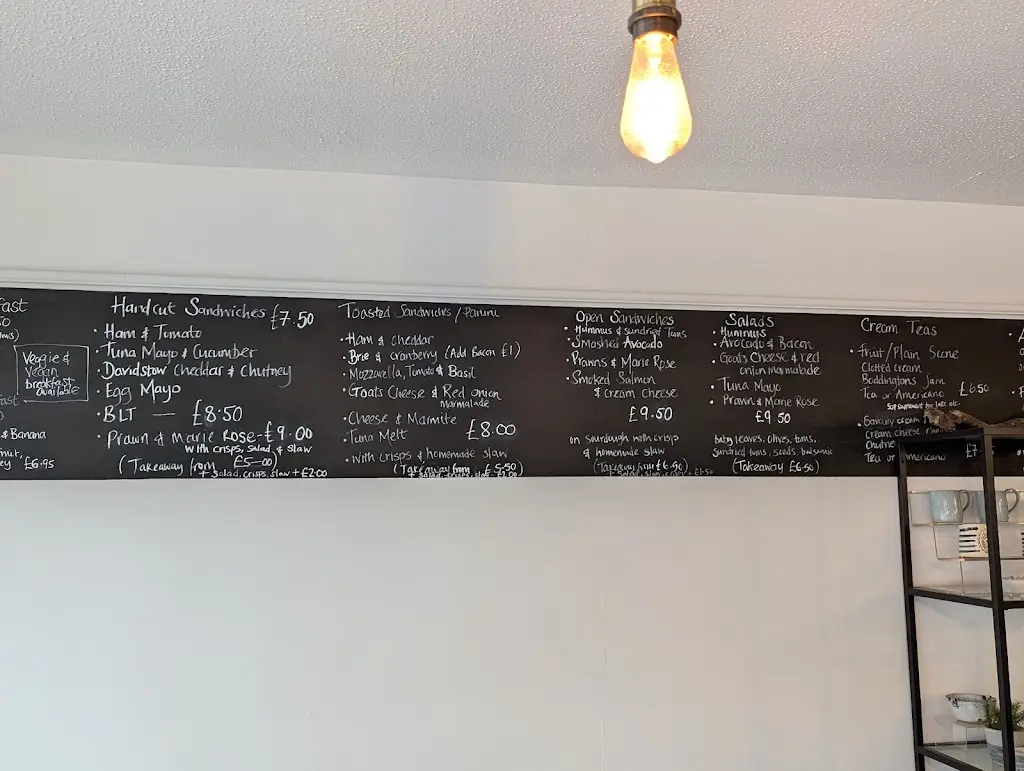 fast
50
Veggie &
Vegan
breakfast
available
fast
& Banana
£6.95
Handcut Sandwiches £7.50
• Ham & Tomato
• Tuna Mayo & Cucumber
• Davidstow Cheddar & Chutney
• Egg Mayo
• BLT — £8.50
• Prawn & Marie Rose - £9.00
with crisps, salad & slaw
(Takeaway from £5-00)
+ salad, crisps, slaw + £2.00
Toasted Sandwiches / Panini
• Ham & cheddar
• Brie & cranberry (Add Bacon £1)
• Mozzarella, Tomato & Basil
• Goats Cheese & Red onion
marmalade
• Cheese & Marmite
• Tuna Melt £8.00
• with crisps & homemade slaw
(Takeaway from £5.50)
+ salad, crisps, slaw
Open Sandwiches
• Hummus & sundried Toms
• Smashed Avocado
• Prawns & Marie Rose
• Smoked Salmon
& Cream Cheese
£9.50
on sourdough with crisps
& homemade slaw
(Takeaway from £6.50)
+ salad, slaw, crisps
Salads
• Hummus
• Avocado & Bacon
• Goats Cheese & red
onion marmalade
• Tuna Mayo
• Prawn & Marie Rose
£9.50
baby leaves, olives, toms,
sundried toms, seeds, balsamic
(Takeaway £6.50)
Cream Teas
• Fruit/Plain Scone
Clotted cream
Boddingtons Jam
Tea or Americano £6.50
• Savoury cream
Cream cheese
Chutne
Tea or Americano £7